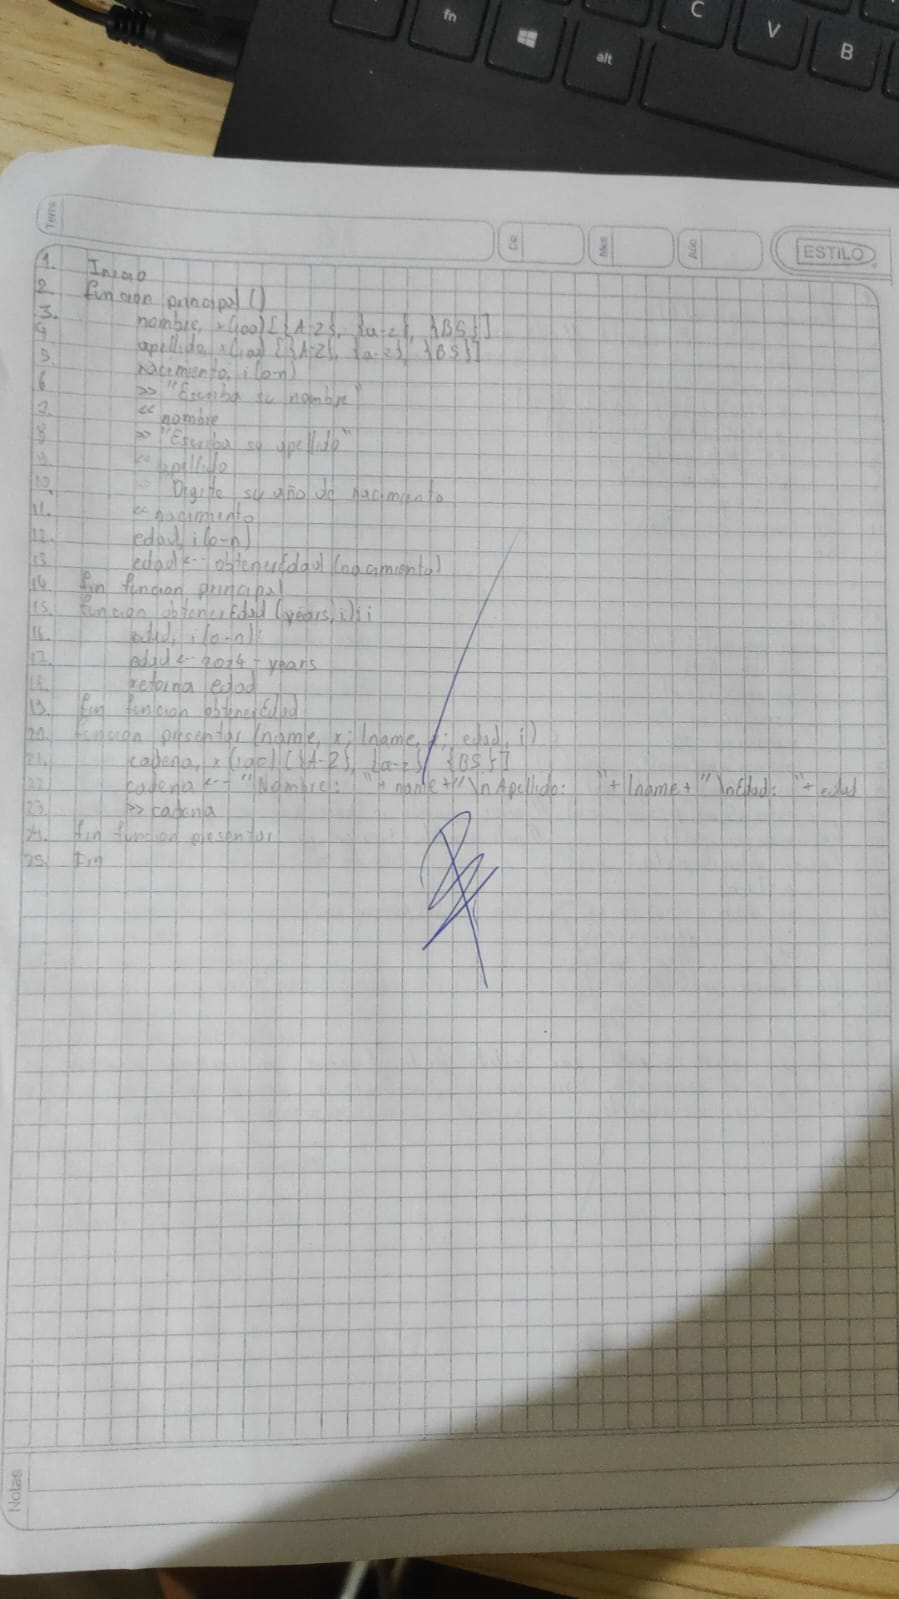 fn
alt
C
V
B
Tema
Mes
Año
ESTILO
1. Inicio
2. funcion principal ()
3. nombre, x(100) [{A-Z}, {a-z}, {BS}]
4 apellido, x(100) [{A-Z}, {a-z}, {BS}]
5. nacimiento, i(0-n)
6 >> "Escriba su nombre"
7. << nombre
8 >> "Escriba su apellido"
9 << apellido
10 Digite su año de nacimiento
11. << nacimiento
12. edad, i(0-n)
13 edad <-- obtenerEdad (nacimiento)
14 fin funcion principal
15. funcion obtenerEdad (years, i); i
16. edad, i(0-n);
17. edad <- 2024 - years
18 retorna edad
19. fin funcion obtenerEdad
20. funcion presentar (name, x; lname, x; edad, i)
21. cadena, x(100) [{A-Z}, {a-z}, {BS}]
22 cadena <-- "Nombre: "+ name +"\nApellido: "+ lname + "\nEdad: "+ edad
23. >> cadena
24. fin funcion presentar
25. Fin
Notas